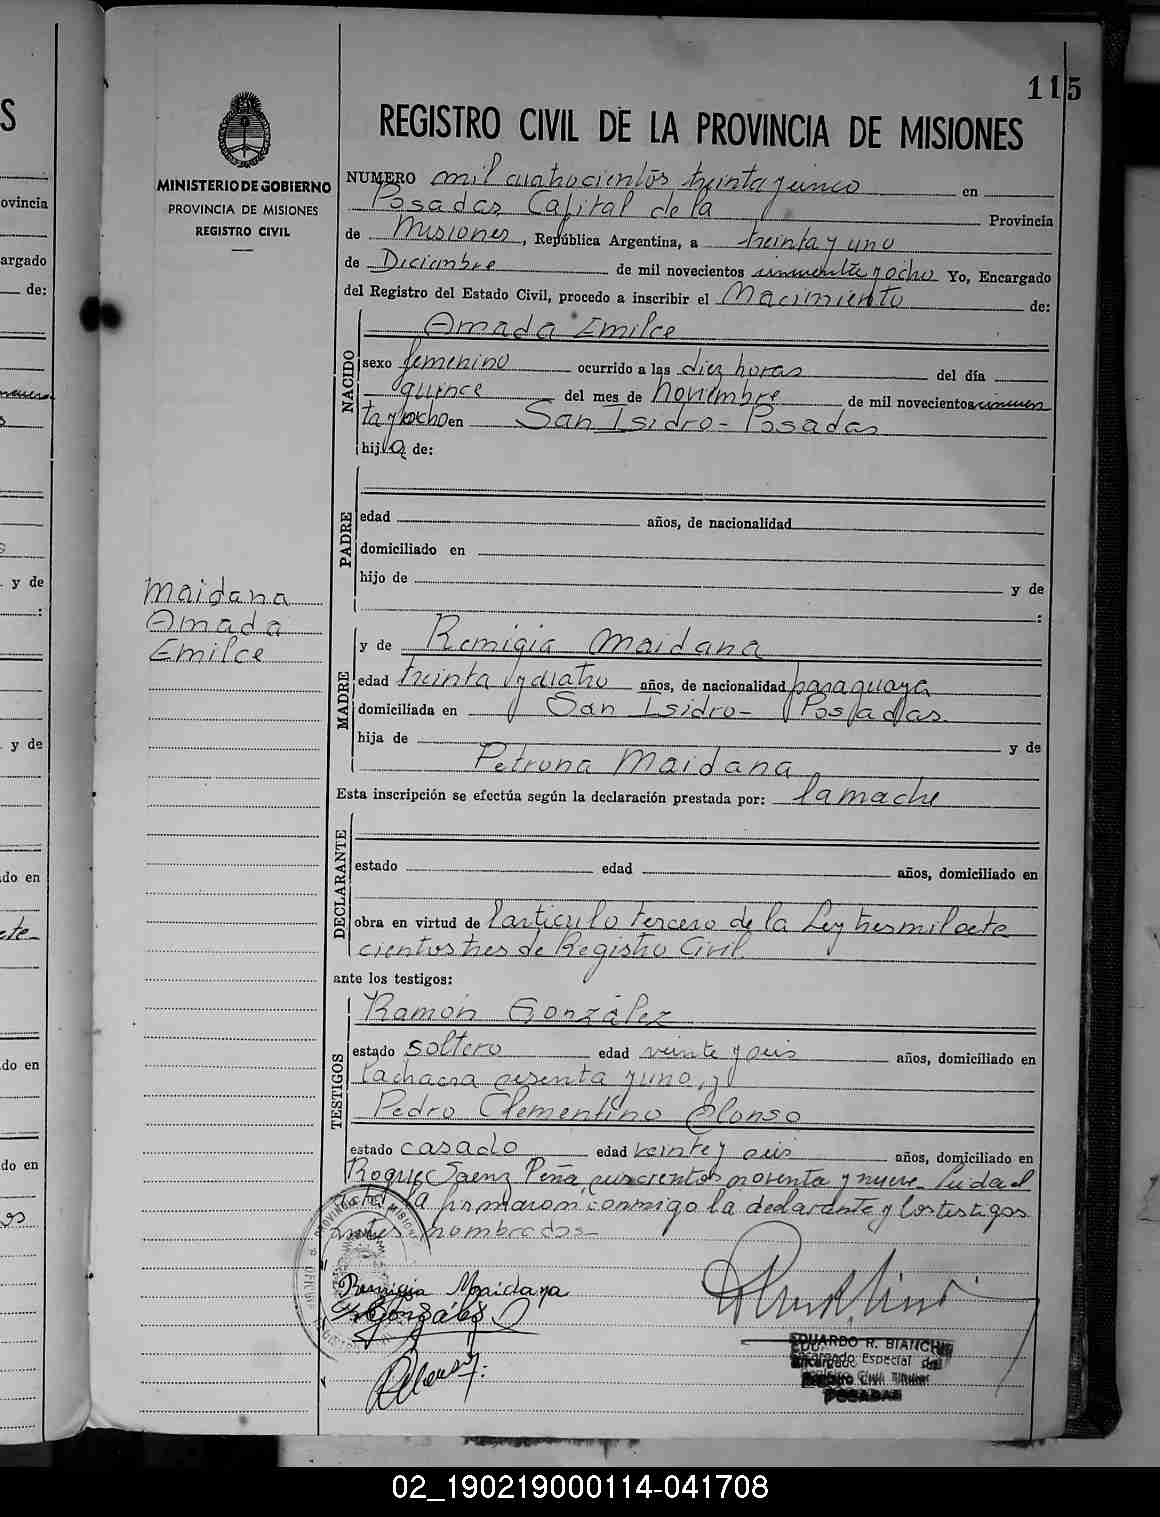 115
REGISTRO CIVIL DE LA PROVINCIA DE MISIONES
MINISTERIO DE GOBIERNO
PROVINCIA DE MISIONES
REGISTRO CIVIL
NUMERO mil cuatrocientos treinta y cinco en
Posadas Capital de la Provincia
de Misiones, República Argentina, a treinta y uno
de Diciembre de mil novecientos cincuenta y ocho Yo, Encargado
del Registro del Estado Civil, procedo a inscribir el Nacimiento de:
NACIDO
Amada Emilce
sexo femenino ocurrido a las diez horas del día
quince del mes de noviembre de mil novecientos cincuen
ta y ocho en San Isidro - Posadas
hija de:
PADRE
edad años, de nacionalidad
domiciliado en
hijo de y de
:
Maidana
Amada
Emilce
MADRE
y de Remigia Maidana
edad treinta y cuatro años, de nacionalidad paraguaya
domiciliada en San Isidro - Posadas
hija de y de
Petrona Maidana
Esta inscripción se efectúa según la declaración prestada por: la madre
DECLARANTE
estado edad años, domiciliado en
obra en virtud de l articulo tercero de la Ley tres mil sete
cientos tres de Registro Civil
ante los testigos:
TESTIGOS
Ramón González
estado soltero edad veinte y seis años, domiciliado en
la chacra sesenta y uno, y
Pedro Clementino Alonso
estado casado edad veinte y seis años, domiciliado en
Roque Saenz Peña noventa y nueve Leida el
acta la firmaron conmigo la declarante y los testigos
antes nombrados
Remigia Maidana
González
Alonso
EDUARDO R. BIANCHI
Encargado Especial del
Registro Civil
POSADAS
02_190219000114-041708